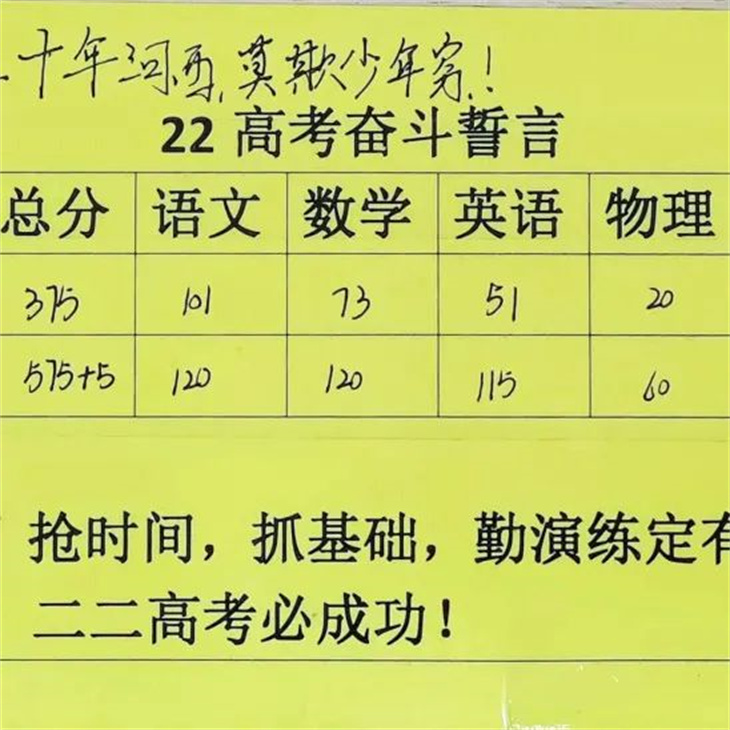 十年河西,莫欺少年穷!
22 高考奋斗誓言
总分 语文 数学 英语 物理
375 101 73 51 20
575+5 120 120 115 60
抢时间，抓基础，勤演练定有
二二高考必成功！